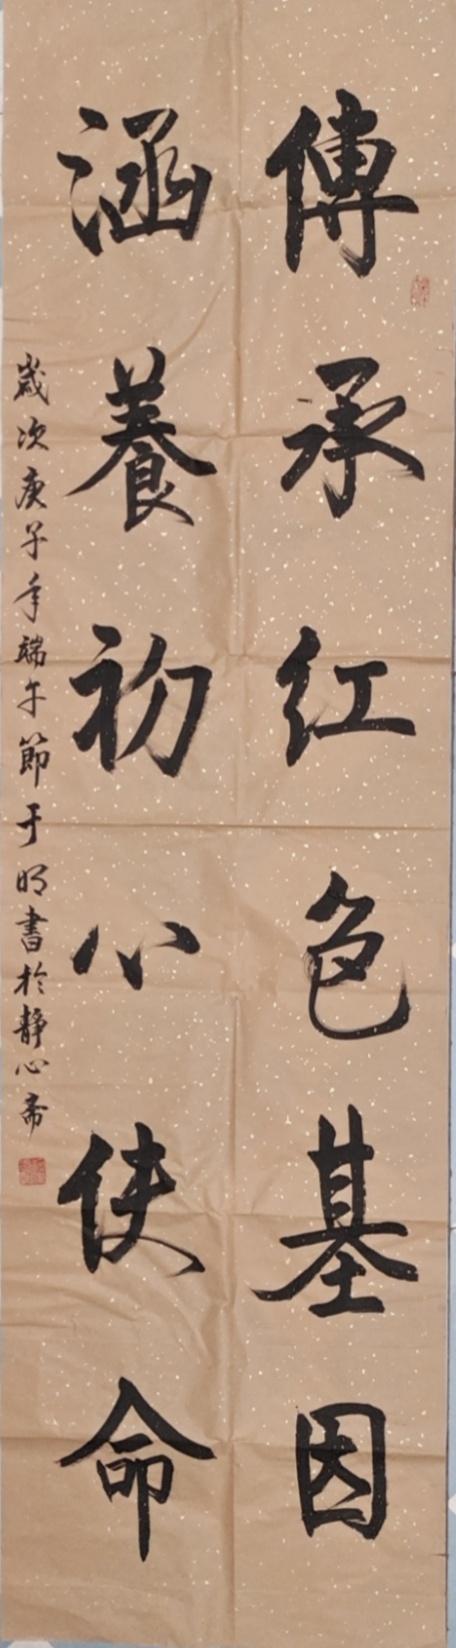 傳承红色基因
涵養初心使命
歲次庚子年端午節于明書於静心斋